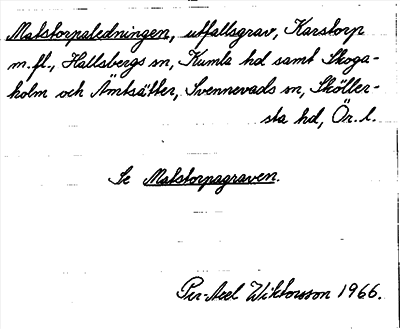 Matstorpaledningen, utfallsgrav, Karstorp
m.fl., Hallsbergs sn, Kumla hd samt Skoga-
holm och Ämtsätter, Svennevads sn, Sköller-
sta hd, Ör. l.
Se Matstorpagraven.
Per-Axel Wiktorsson 1966.